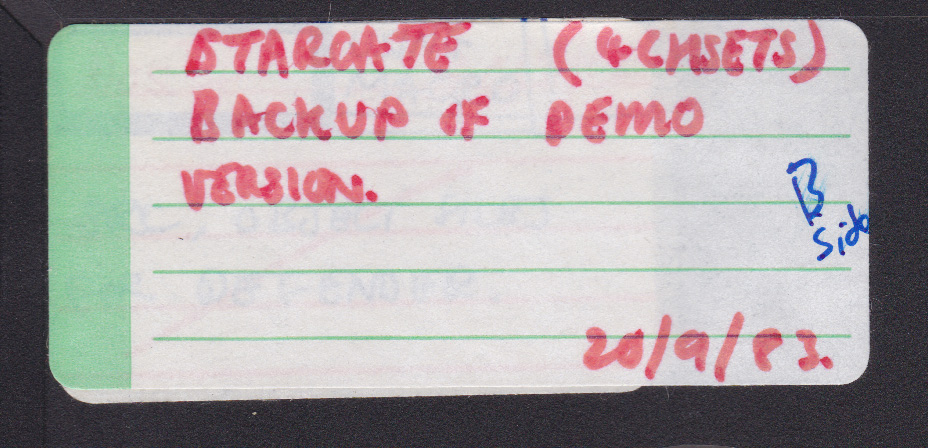 STARGATE (4 CHSETS)
BACKUP OF DEMO
VERSION.
B
Side
20/9/83.